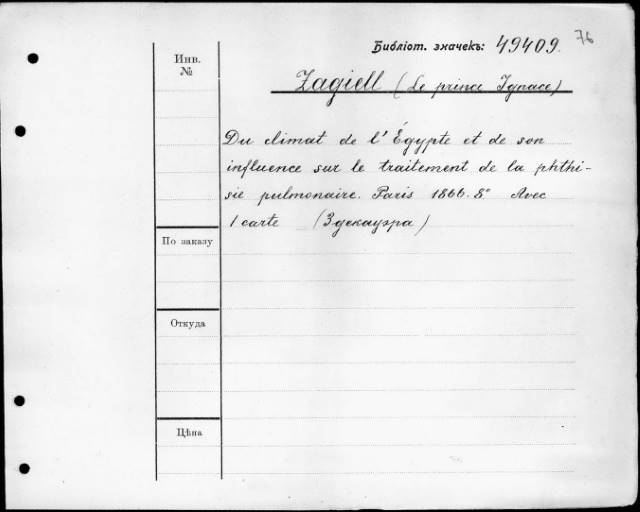 Библіот. значекъ: 49409. 76
Инв.
№
Zagiell (Le prince Ignace)
Du climat de l'Égypte et de son
influence sur le traitement de la phthi-
sie pulmonaire. Paris 1866. 8° Avec
1 carte (Здекауэра)
По заказу
Откуда
Цѣна